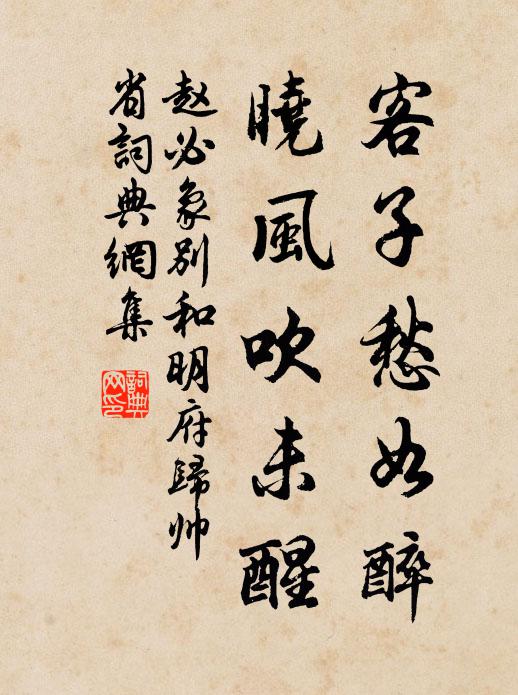 客子愁如醉
曉風吹未醒
赵必象別和明府歸帅
省詞典網集
詞典网印